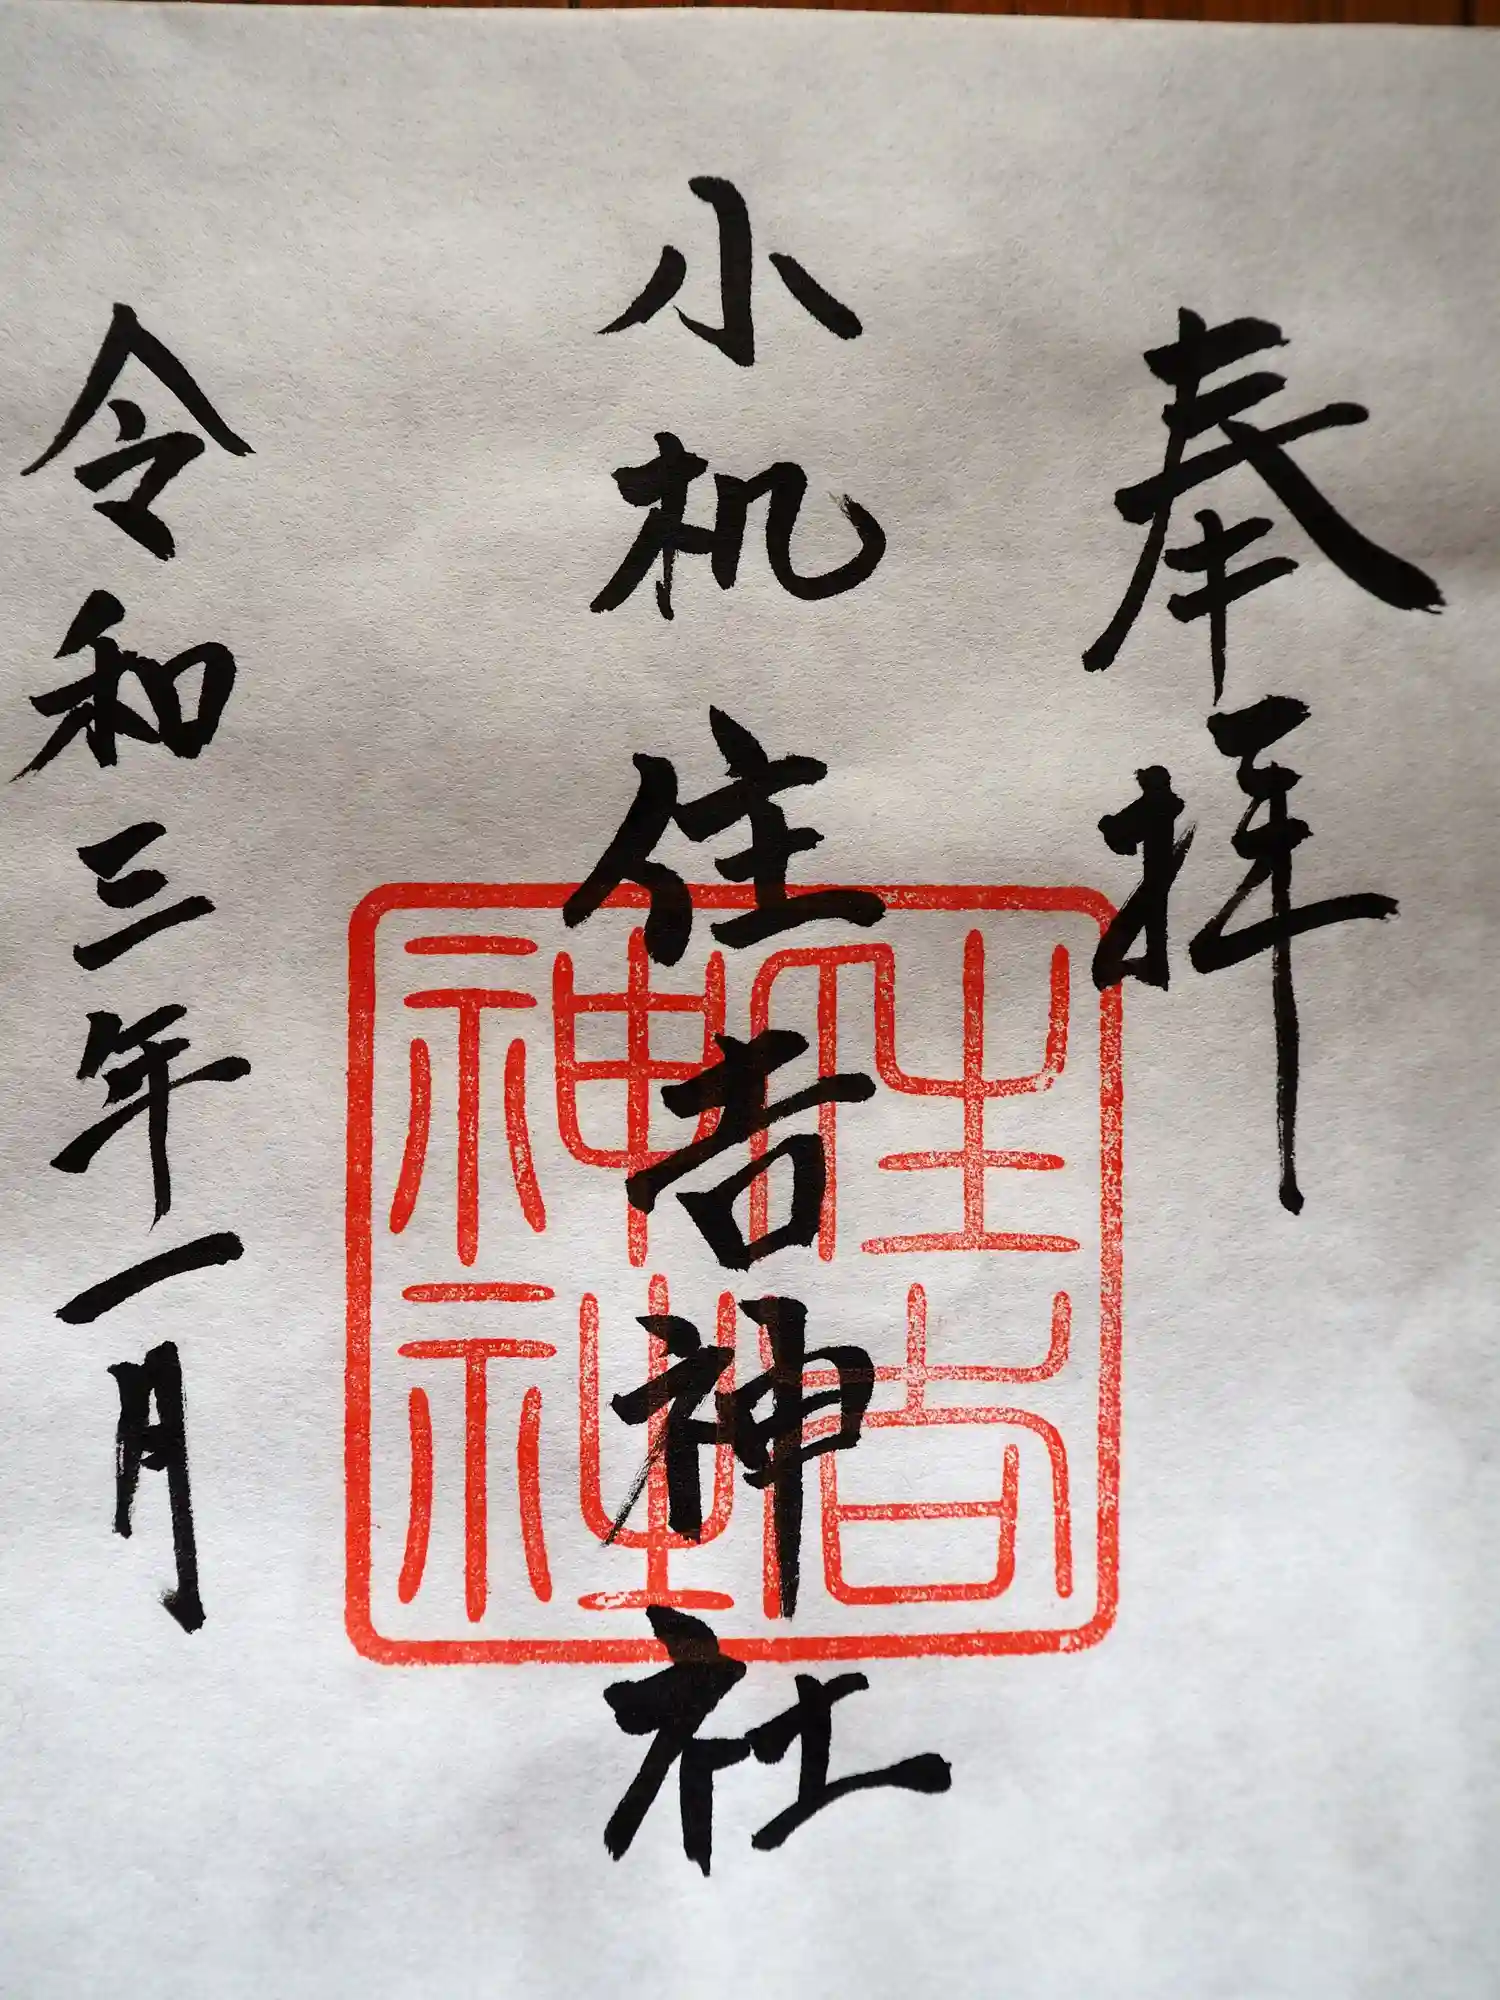 奉拝
小机住吉神社
住吉
神社
令和三年一月